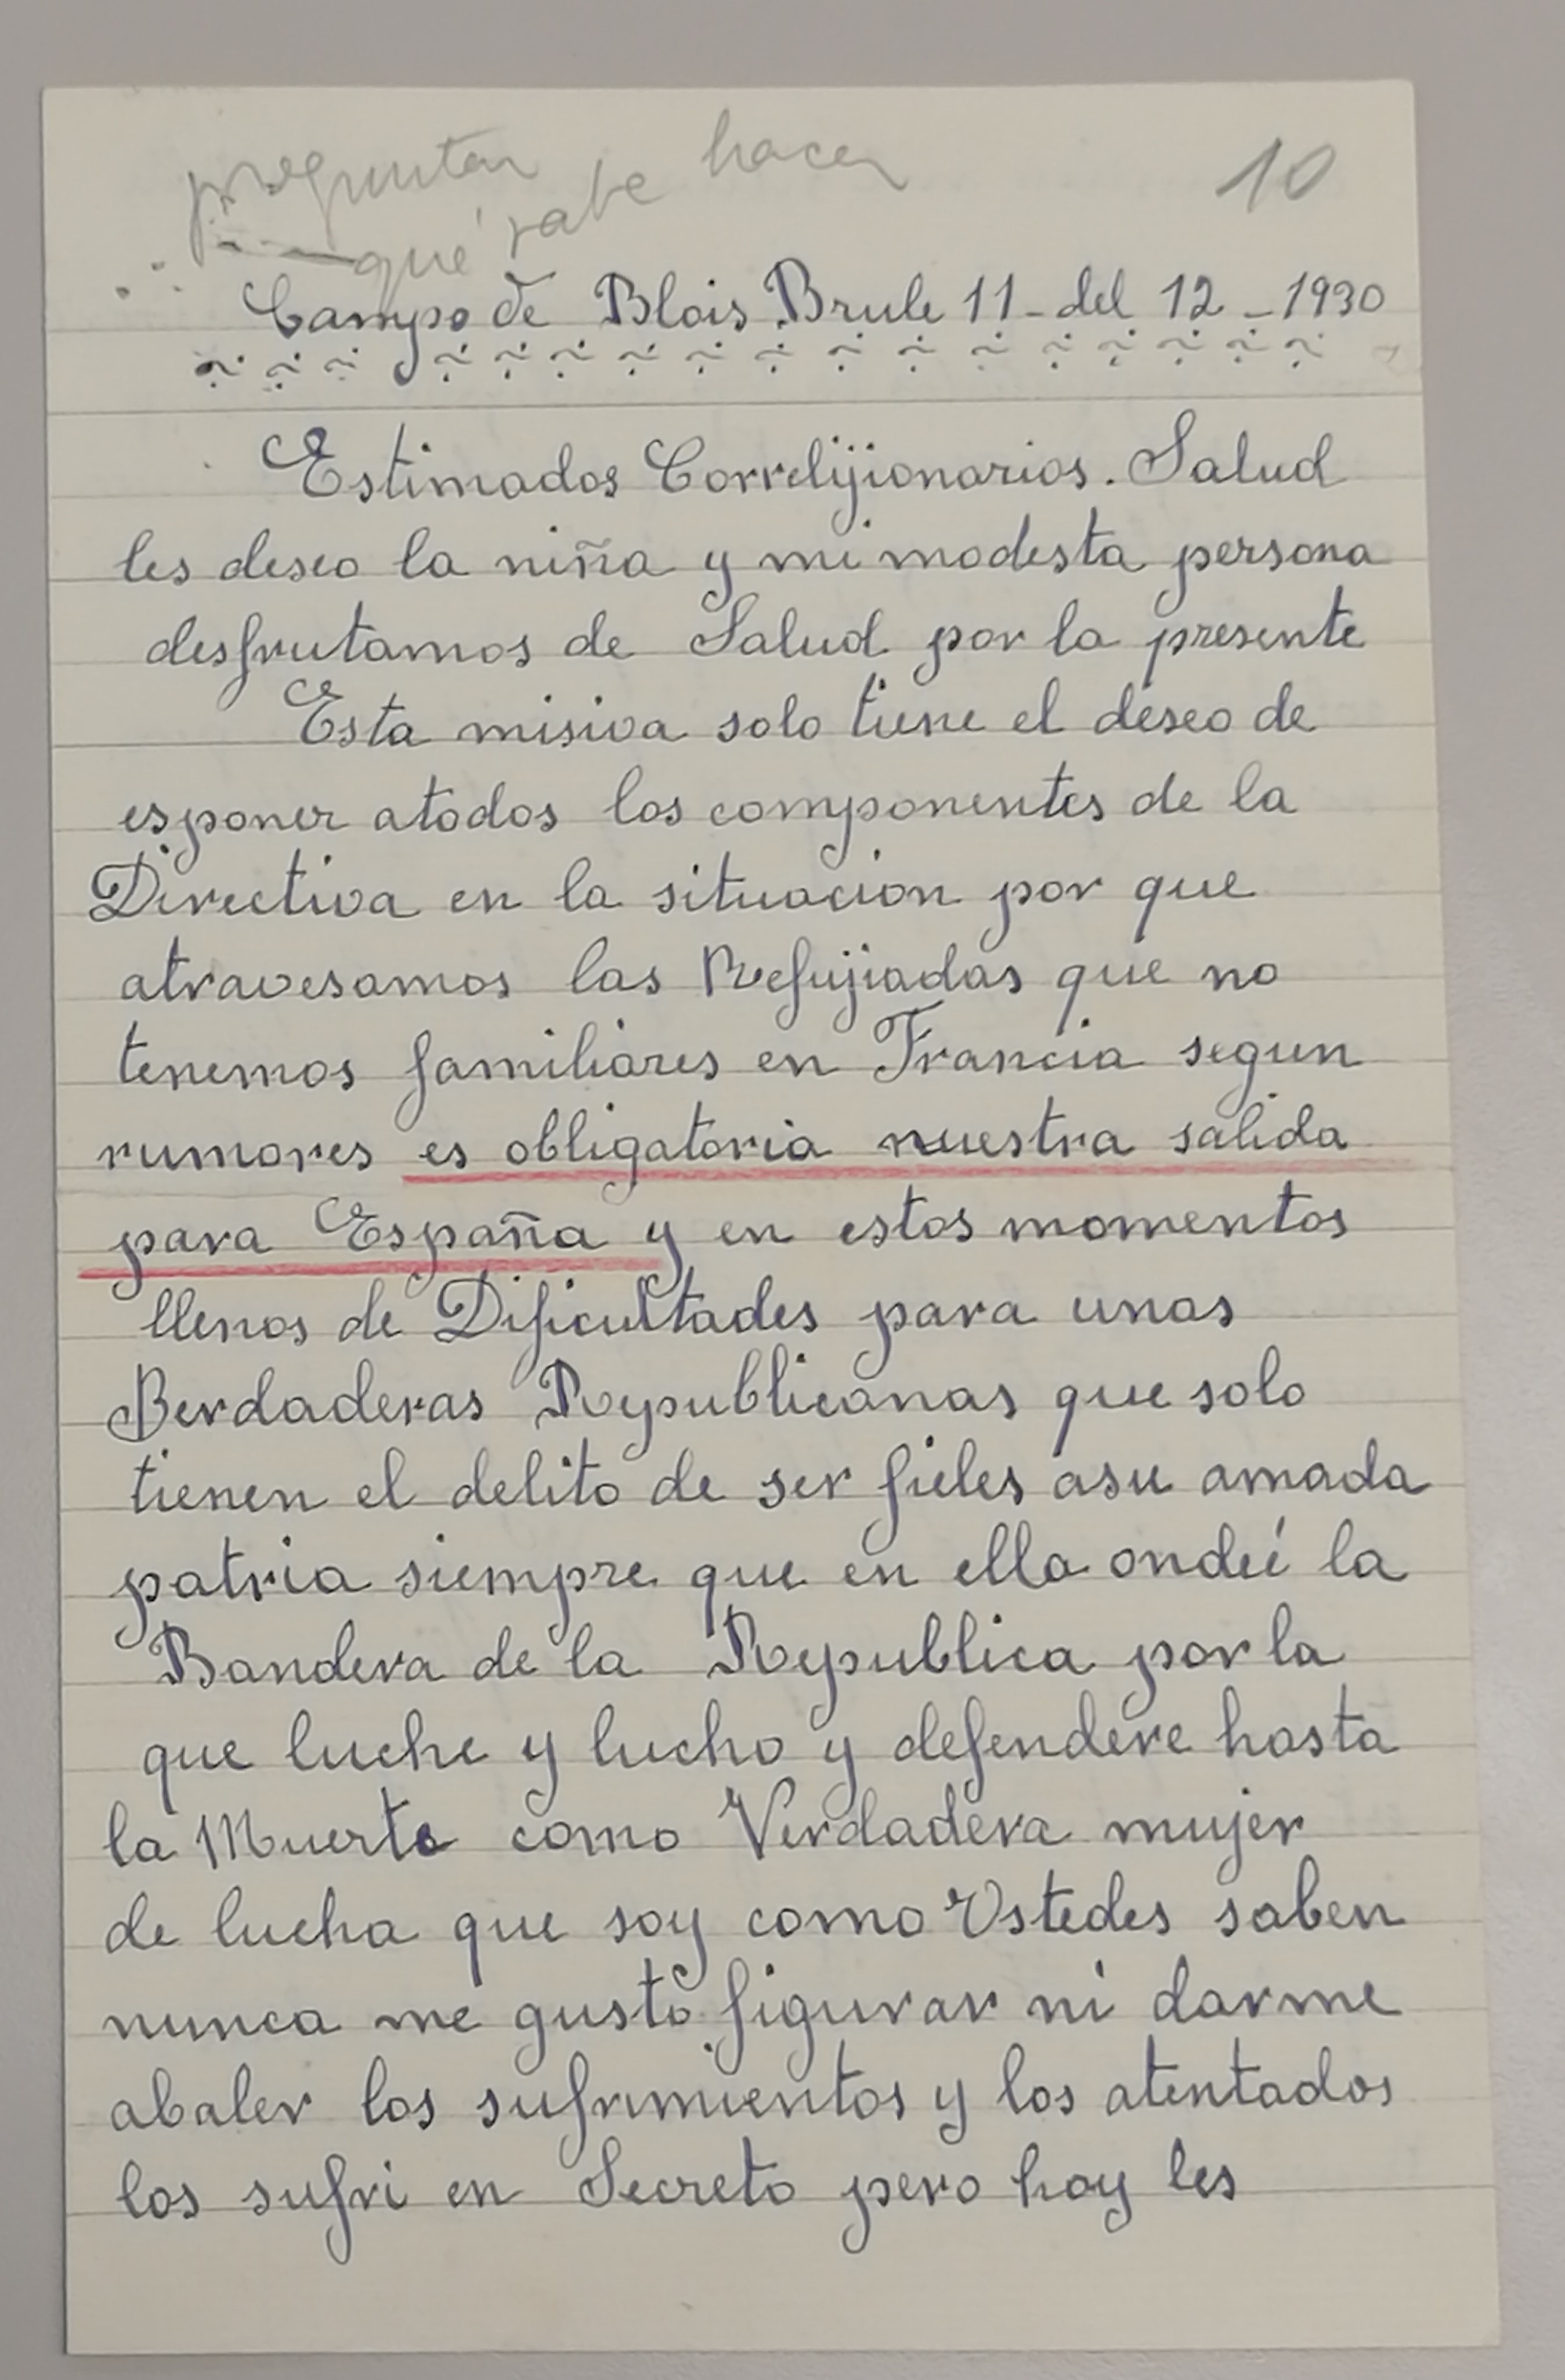 preguntar
qué sabe hacer
10
Campo de Blois Brule 11 - del 12 - 1930
Estimados Correlijionarios. Salud
les deseo la niña y mi modesta persona
desfrutamos de Salud por la presente
Esta misiva solo tiene el deseo de
esponer atodos los componentes de la
Directiva en la situacion por que
atravesamos las Refujiadas que no
tenemos familiares en Francia segun
rumores es obligatoria nuestra salida
para España y en estos momentos
llenos de Dificultades para unas
Berdaderas Republicanas que solo
tienen el delito de ser fieles asu amada
patria siempre que en ella ondeé la
Bandera de la Republica por la
que luche y lucho y defendere hasta
la Muerte como Verdadera mujer
de lucha que soy como Ustedes saben
nunca me gustó figurar ni darme
abaler los sufrimientos y los atentados
los sufri en Secreto pero hoy les